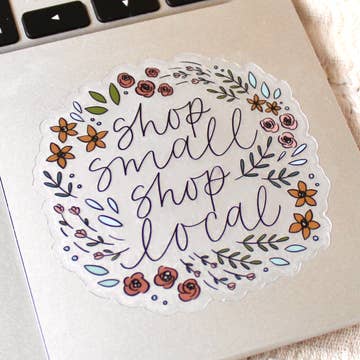 shop
small
shop
local